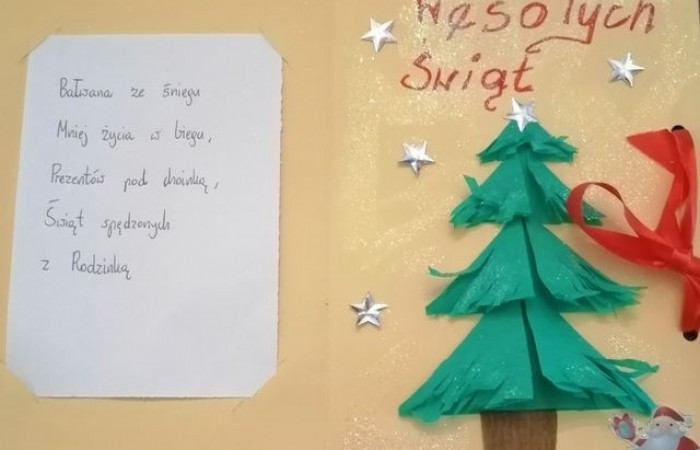 Bałwana ze śniegu
Mniej życia w biegu,
Prezentów pod choinką,
Świąt spędzonych
z Rodzinką
Wesołych
Świąt